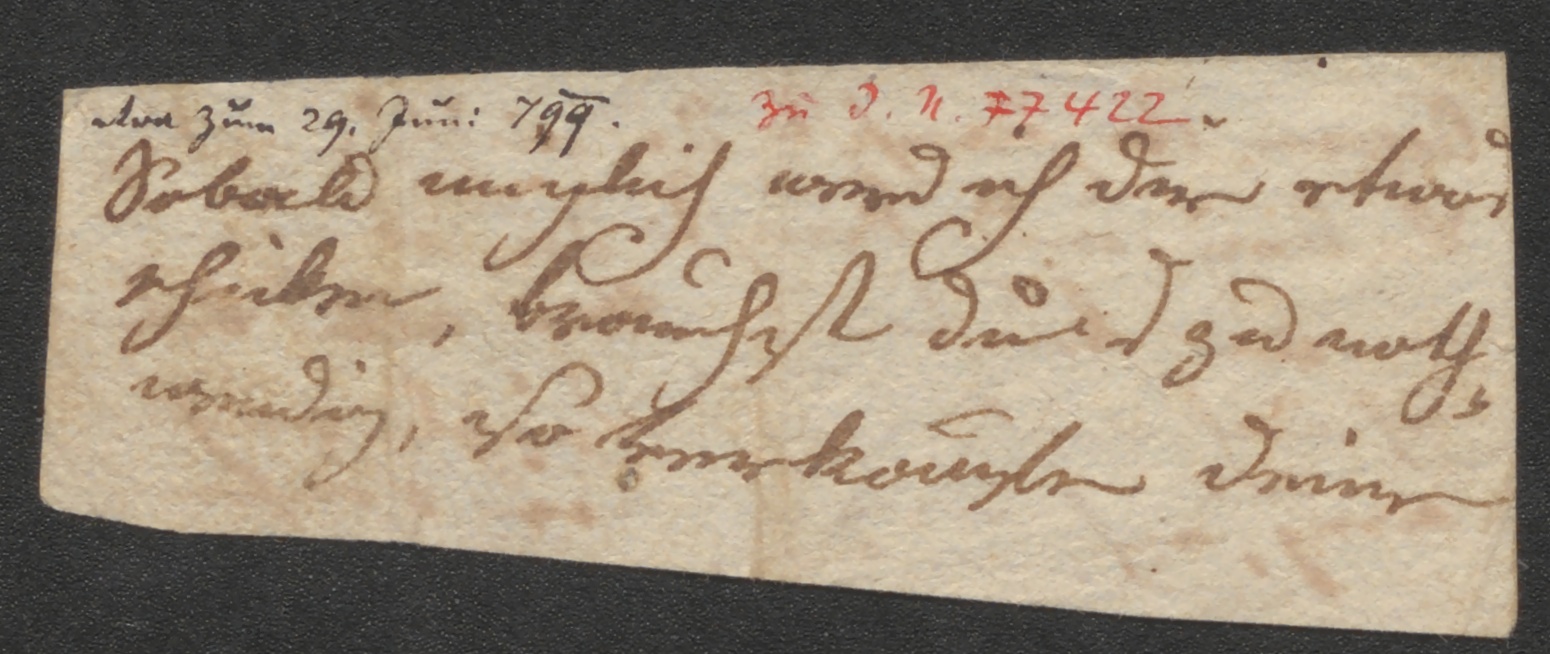 etwa zum 29. Juni 799. zu D. N. 77422.
Sobald möglich werd ich dir etwas
schicken, brauchst du's zu noth¬
wendig, so verkaufe deine